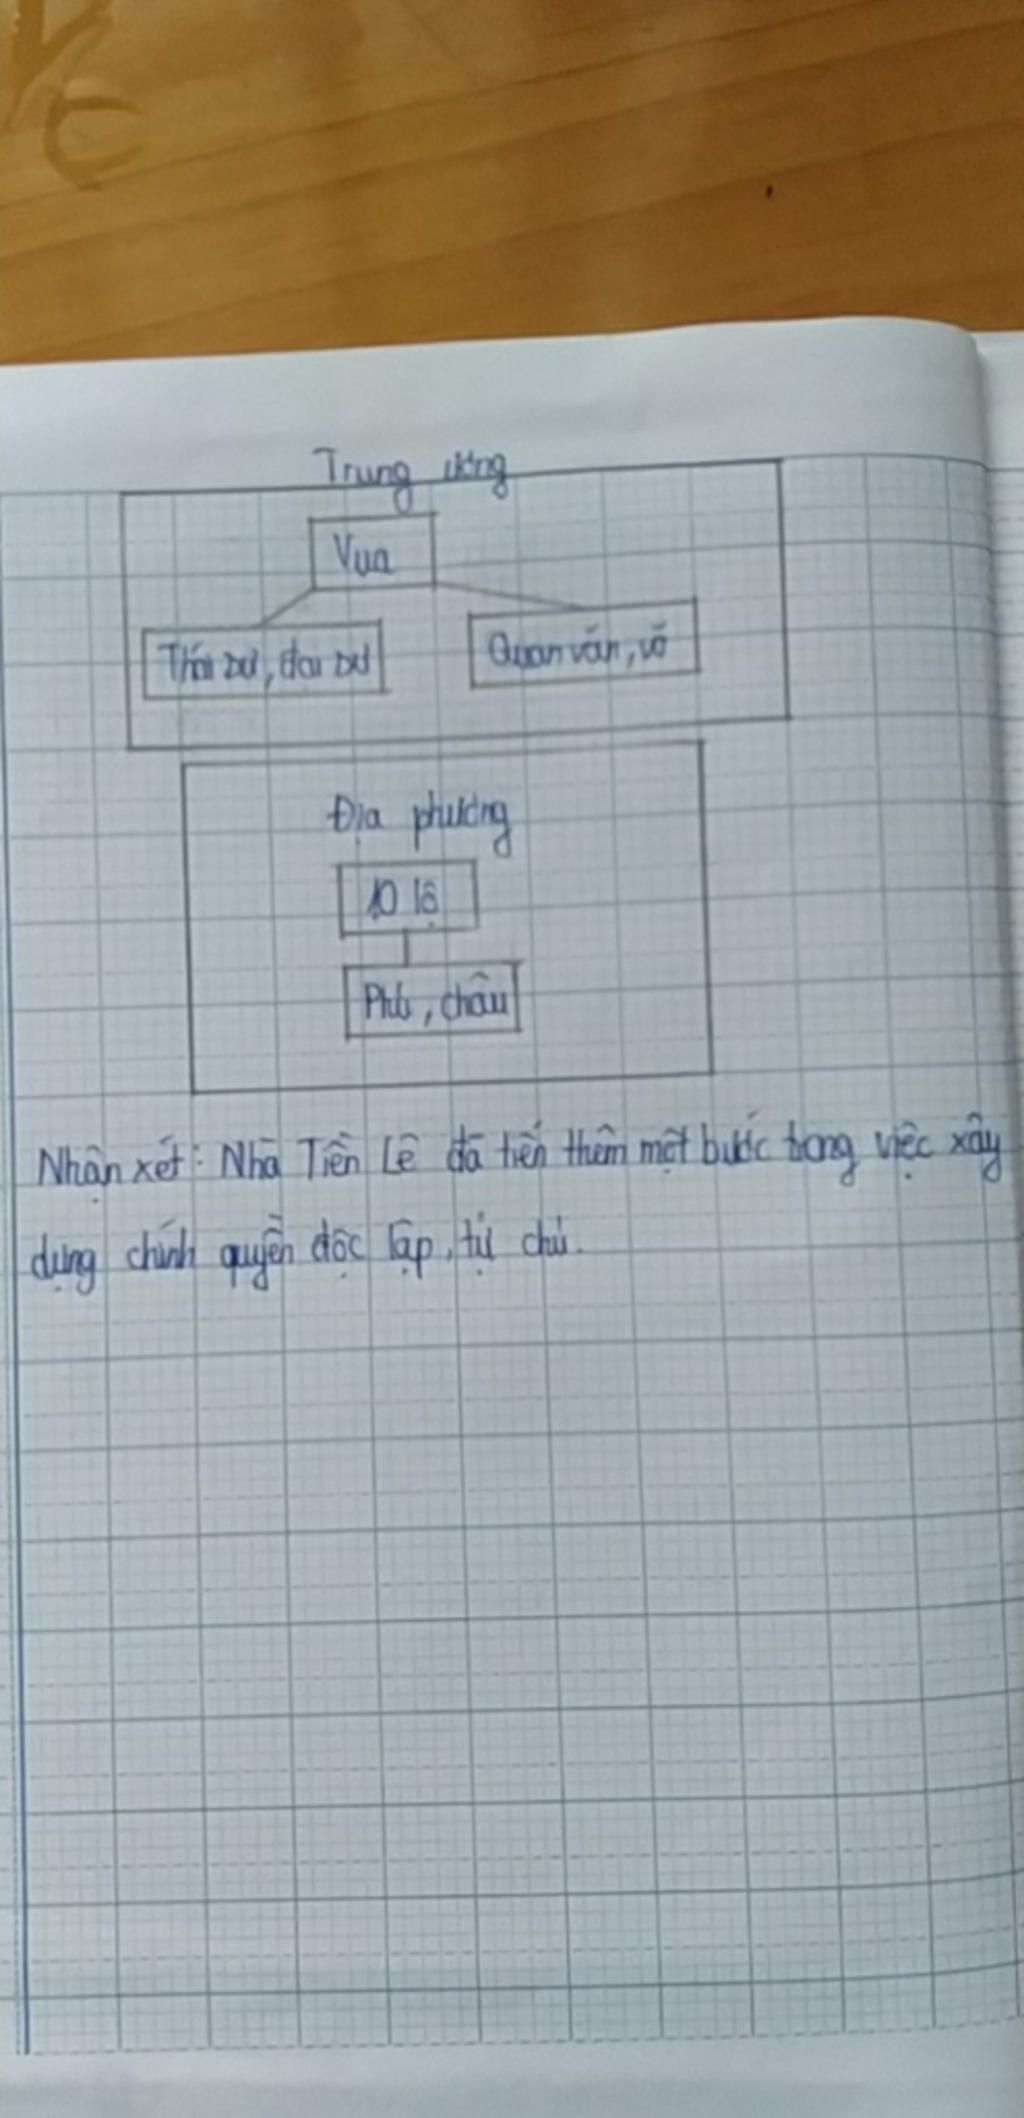 Trung ương
Vua
Thái sư, đại sư
Quan văn, võ
Địa phương
10 lộ
Phủ, châu
Nhận xét: Nhà Tiền Lê đã tiến thêm một bước trong việc xây
dựng chính quyền độc lập, tự chủ.